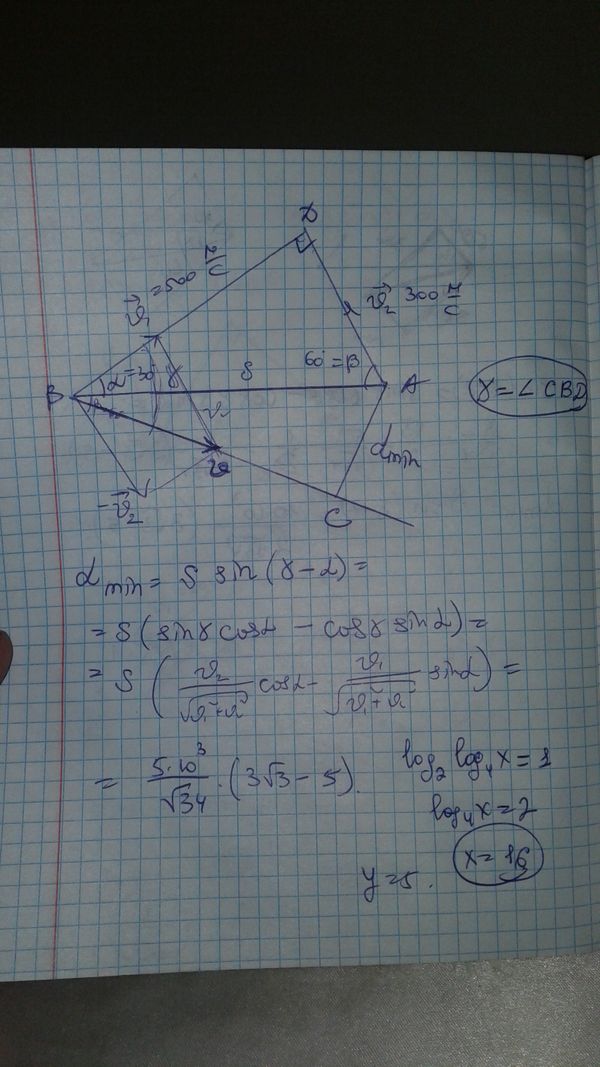 D
v⃗₁ = 500 м/с
v⃗₂ 300 м/с
B α=30° γ S 60°=β A
γ = ∠ CBD
v₂
d min
v⃗
-v⃗₂
C
d min = S sin(γ-α) =
= S (sinγ cosα - cosγ sinα) =
= S (v₂/√(v₁²+v₂²) cosα - v₁/√(v₁²+v₂²) sinα) =
= 5·10³/√34 · (3√3 - 5).
log₂ log₄ x = 1
log₄ x = 2
x = 16
y = 5.